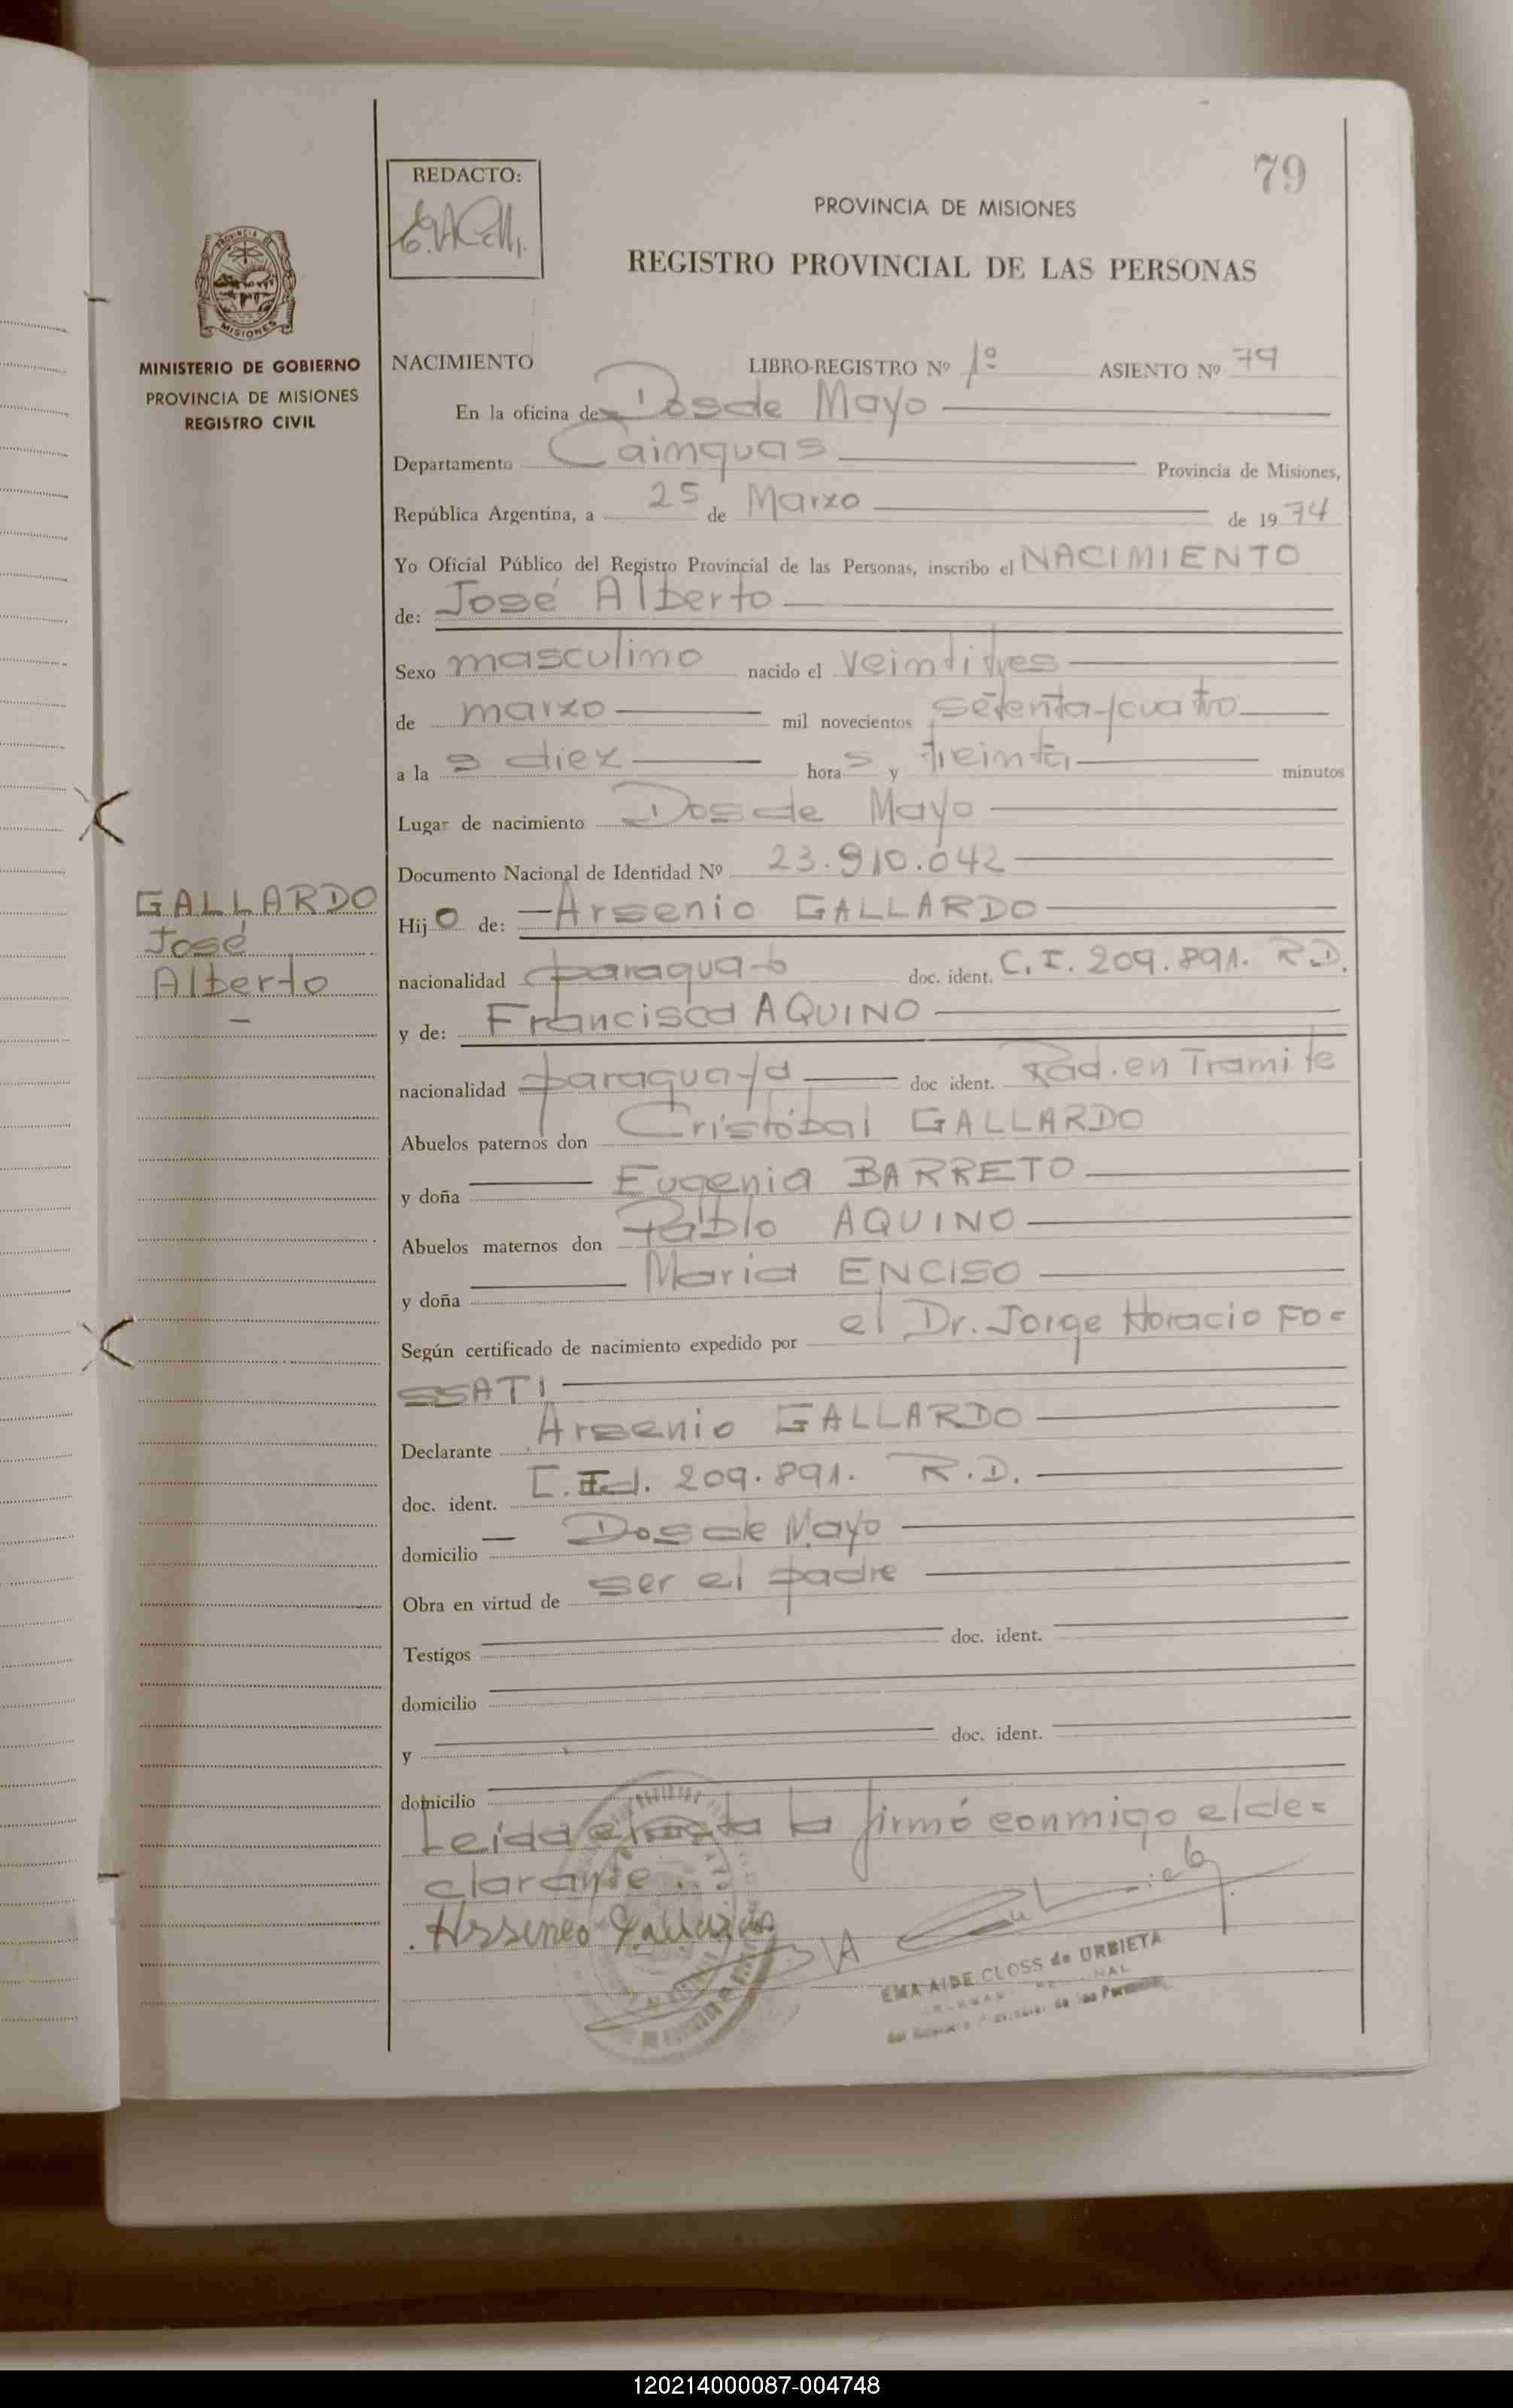 79
REDACTO:
PROVINCIA DE MISIONES
REGISTRO PROVINCIAL DE LAS PERSONAS
PROVINCIA DE
MISIONES
MINISTERIO DE GOBIERNO
PROVINCIA DE MISIONES
REGISTRO CIVIL
NACIMIENTO LIBRO-REGISTRO Nº 1º ASIENTO Nº 79
En la oficina de Dos de Mayo
Departamento Cainguas Provincia de Misiones,
República Argentina, a 25 de Marzo de 1974
Yo Oficial Público del Registro Provincial de las Personas, inscribo el NACIMIENTO
de: José Alberto
Sexo masculino nacido el veintitres
de marzo mil novecientos setenta y cuatro
a las diez horas y treinta minutos
Lugar de nacimiento Dos de Mayo
Documento Nacional de Identidad Nº 23.910.042
GALLARDO
José
Alberto
Hijo de: Arsenio GALLARDO
nacionalidad paraguayo doc. ident. C. I. 209.891. R.D.
y de: Francisca AQUINO
nacionalidad paraguaya doc ident. Rad. en Tramite
Abuelos paternos don Cristóbal GALLARDO
y doña Eugenia BARRETO
Abuelos maternos don Pablo AQUINO
y doña Maria ENCISO
Según certificado de nacimiento expedido por el Dr. Jorge Horacio FO=
SSATI
Declarante Arsenio GALLARDO
doc. ident. 209.891. R.D.
domicilio Dos de Mayo
Obra en virtud de ser el padre
Testigos doc. ident.
domicilio
y doc. ident.
domicilio
Leida el acta la firmó conmigo el de=
clarante.
Arsenio Gallardo
EMA AIDE CLOSS de URBIETA
de las Personas
120214000087-004748